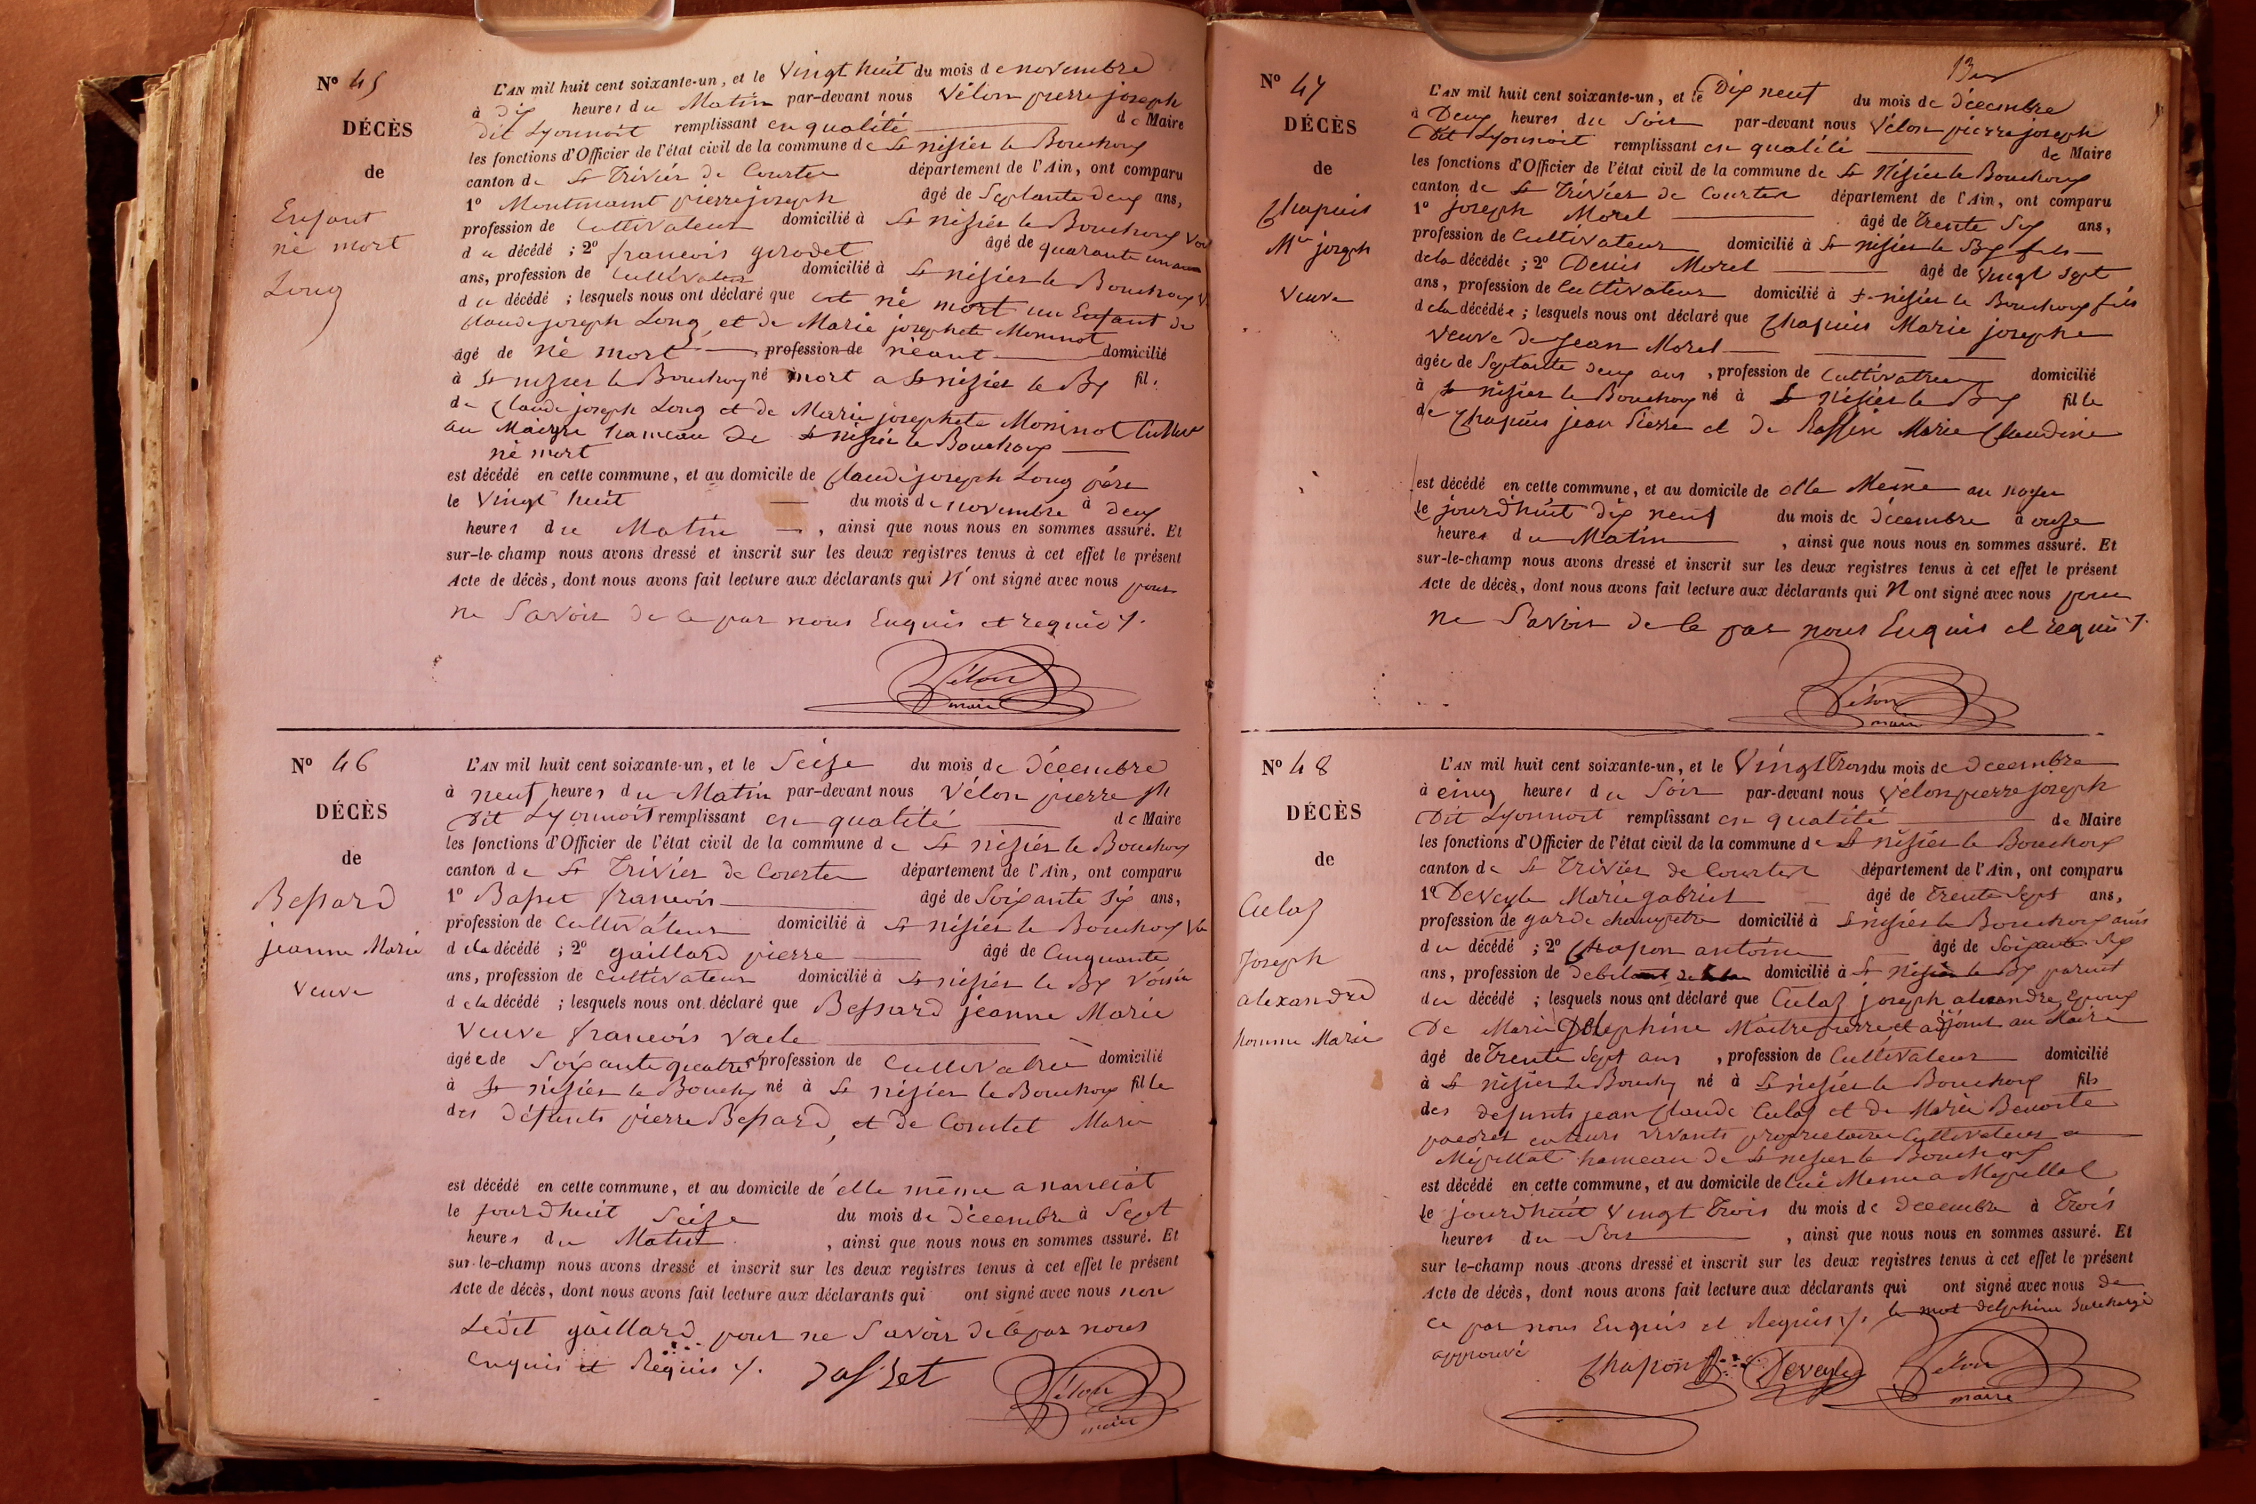 Nº 45
DÉCÈS
de
Enfant
né mort
Long
L'AN mil huit cent soixante-un, et le Vingt huit du mois de novembre
à dix heures du Matin par-devant nous Vélon pierre joseph
dit Lyonnoit remplissant en qualité de Maire
les fonctions d'Officier de l'état civil de la commune de St nisier le Bouchoux
canton de St Trivier de Courtes département de l'Ain, ont comparu
1º pierre joseph âgé de Septante deux ans,
profession de Cultivateur domicilié à St nizier le Bouchoux
du décédé ; 2º francois girodet âgé de quarante un
ans, profession de Cultivateur domicilié à St nisier le Bouchoux
du décédé ; lesquels nous ont déclaré que est né mort un Enfant de
Claude joseph Long, et de Marie josephete Moninot
âgé de né mort , profession de néant domicilié
à St nizier le Bouchoux né mort a St nisier le Bx fil
de Claude joseph Long et de Marie josephete Moninot
au hameau de St nisier le Bouchoux
né mort
est décédé en cette commune, et au domicile de Claude joseph Long père
le Vingt huit du mois de novembre à deux
heures du Matin , ainsi que nous nous en sommes assuré. Et
sur-le-champ nous avons dressé et inscrit sur les deux registres tenus à cet effet le présent
Acte de décès, dont nous avons fait lecture aux déclarants qui N' ont signé avec nous pour
ne Savoir de ce par nous Enquis et requis ./.
Vélon
maire
Nº 46
DÉCÈS
de
Bessard
jeanne Marie
Veuve
L'AN mil huit cent soixante-un, et le Seize du mois de Décembre
à neuf heures du Matin par-devant nous Vélon pierre jh
Dit Lyonnoit remplissant en qualité de Maire
les fonctions d'Officier de l'état civil de la commune de St nisier le Bouchoux
canton de St Trivier de Courtes département de l'Ain, ont comparu
1º Basset francois âgé de Soixante Six ans,
profession de Cultivateur domicilié à St nisier le Bouchoux
de la décédé ; 2º gaillard pierre âgé de Cinquante
ans, profession de Cultivateur domicilié à St nisier le Bx Voisin
de la décédé ; lesquels nous ont déclaré que Bessard jeanne Marie
Veuve francois
âgée de Soixante quatre profession de Cultivatrice domicilié
à St nisier le Boucho né à St nisier le Bouchoux fille
des Défunts pierre Bessard, et de Comtet Marie
est décédé en cette commune, et au domicile de elle même a
le jourdhuit Seize du mois de Décembre à Sept
heures du Matin , ainsi que nous nous en sommes assuré. Et
sur-le-champ nous avons dressé et inscrit sur les deux registres tenus à cet effet le présent
Acte de décès, dont nous avons fait lecture aux déclarants qui ont signé avec nous non
Ledit gaillard pour ne Savoir de ce par nous
Enquis et Requis ./. Basset
Vélon
maire
13
Nº 47
DÉCÈS
de
Chapuis
Mie joseph
Veuve
L'AN mil huit cent soixante-un, et le Dix neuf du mois de décembre
à Deux heures du Soir par-devant nous Vélon pierre joseph
Dit Lyonnoit remplissant en qualité de Maire
les fonctions d'Officier de l'état civil de la commune de St Nisier le Bouchoux
canton de St Trivier de Courtes département de l'Ain, ont comparu
1º joseph Morel âgé de trente Six ans,
profession de Cultivateur domicilié à St nisier le Bx fils
de la décédée ; 2º Denis Morel âgé de Vingt Sept
ans, profession de Cultivateur domicilié à St nisier le Bouchoux fils
de la décédée ; lesquels nous ont déclaré que Chapuis Marie josephe
Veuve de Jean Morel
âgée de Septante deux ans , profession de Cultivatrice domicilié
à St nisier le Bouchoux né à St nisier le Bx fille
de Chapuis jean Pierre et de Marie Claudine
est décédé en cette commune, et au domicile de elle Même au
Le jourdhuit dix neuf du mois de Décembre à onze
heures du Matin , ainsi que nous nous en sommes assuré. Et
sur-le-champ nous avons dressé et inscrit sur les deux registres tenus à cet effet le présent
Acte de décès, dont nous avons fait lecture aux déclarants qui N ont signé avec nous pour
ne Savoir de ce par nous Enquis et requis ./.
Vélon
maire
Nº 48
DÉCÈS
de
Culaz
Joseph
alexandre
homme Marié
L'AN mil huit cent soixante-un, et le Vingt Trois du mois de Décembre
à cinq heures du Soir par-devant nous Vélon pierre joseph
Dit Lyonnoit remplissant en qualité de Maire
les fonctions d'Officier de l'état civil de la commune de St nisier le Bouchoux
canton de St Trivier de Courtes département de l'Ain, ont comparu
1º DeVeyle Marie gabriel âgé de trente Sept ans,
profession de garde champetre domicilié à St nisier le Bouchoux amis
du décédé ; 2º Chapon antoine âgé de Soixante Six
ans, profession de domicilié à St Nisier le Bx parent
du décédé ; lesquels nous ont déclaré que Culaz joseph alexandre Epoux
De Marie Delephine Maitrepierre et adjoint au Maire
âgé de Trente Sept ans , profession de Cultivateur domicilié
à St nisier le Bouchx né à St nisier le Bouchoux fils
des défunts jean Claude Culaz et de Marie Benoite
vivants proprietaires Cultivateurs a
hameau de St nisier le Bouchoux
est décédé en cette commune, et au domicile de lui Meme a
Le jourdhuit Vingt Trois du mois de Décembre à Trois
heures du Soir , ainsi que nous nous en sommes assuré. Et
sur le-champ nous avons dressé et inscrit sur les deux registres tenus à cet effet le présent
Acte de décès, dont nous avons fait lecture aux déclarants qui ont signé avec nous de
ce par nous Enquis et Requis ./. le mot delphine Surchargé
approuvé
Chapon Deveyle Vélon
maire